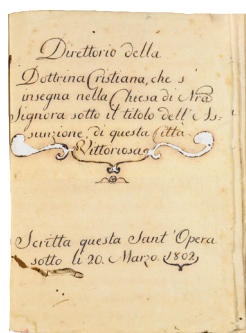 Direttorio della
Dottrina Cristiana, che s'
insegna nella Chiesa di Nra
Signora sotto il titolo dell' As-
sunzione, di questa Citta
Vittoriosa
Scritta questa Sant' Opera
sotto li 20. Marzo. 1802